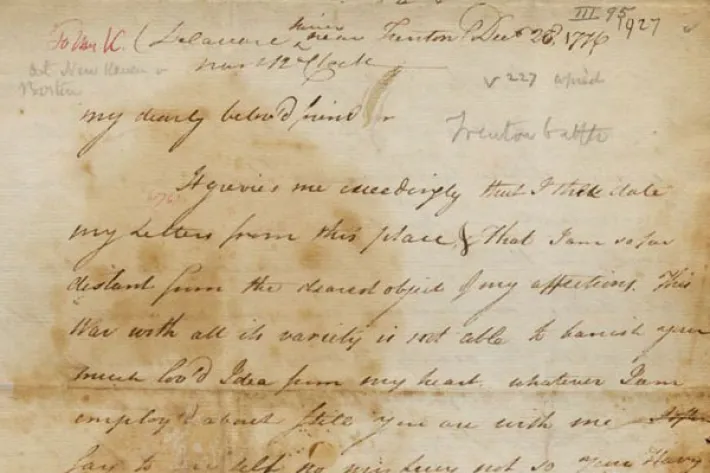 III 95
927
To Mrs K. (Delaware River near Trenton Decr 28, 1776
near 12 o Clock
at New Haven or
Boston
227 copied
my dearly belov'd friend
Trenton battle
It grieves me exceedingly that I still date
my Letters from this place, & that I am so far
distant from the dearest object of my affections. This
War with all its variety is not able to banish your
much lov'd Idea from my heart. whatever I am
employ'd about still you are with me
say to myself no misery not so your Harry